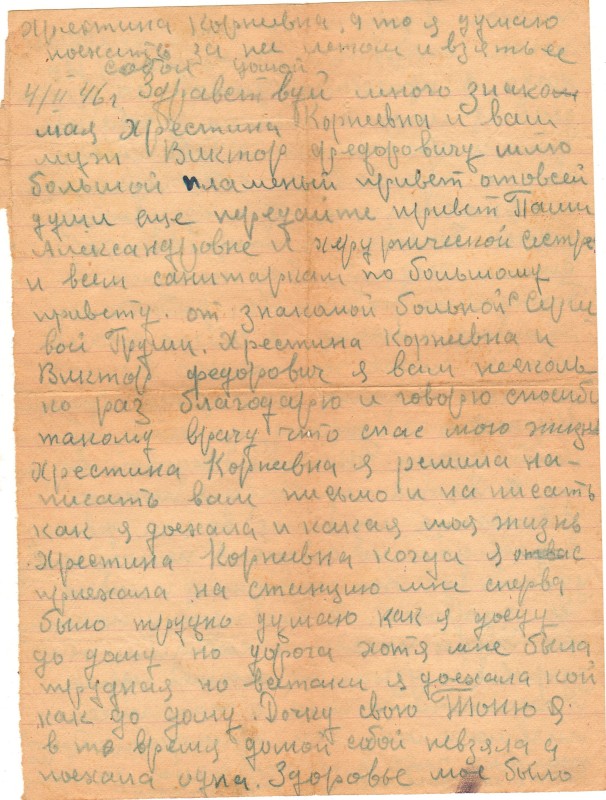 Хрестина Корневна, а то я думаю
поехать за ней и взять ее
собой домой
4/II 46 г. Здравствуй много знако
мая Хрестина Корневна и ваш
муж Виктор Федоровичу шлю
большой пламеный привет отовсей
души еще передайте привет Паши
Александровне и херургической сестре
и всем санитаркам по большому
привету. от знакомой больной
вой Груши. Хрестина Корневна и
Виктор федорович я вам несколь
ко раз благодарю и говорю спасиб
такому врачу что спас мою жизнь
Хрестина Корневна я решила на-
писать вам письмо и написать
как я доехала и какая моя жизнь
Хрестина Корневна когда я отвас
приехала на станцию мне сперва
было трудно думаю как я доеду
до дому но дорога хотя мне была
трудная но всетаки я доехала кой
как до дому. Дочку свою Тоню я
в то время домой собой невзяла а
поехала одна. Здоровье мое было